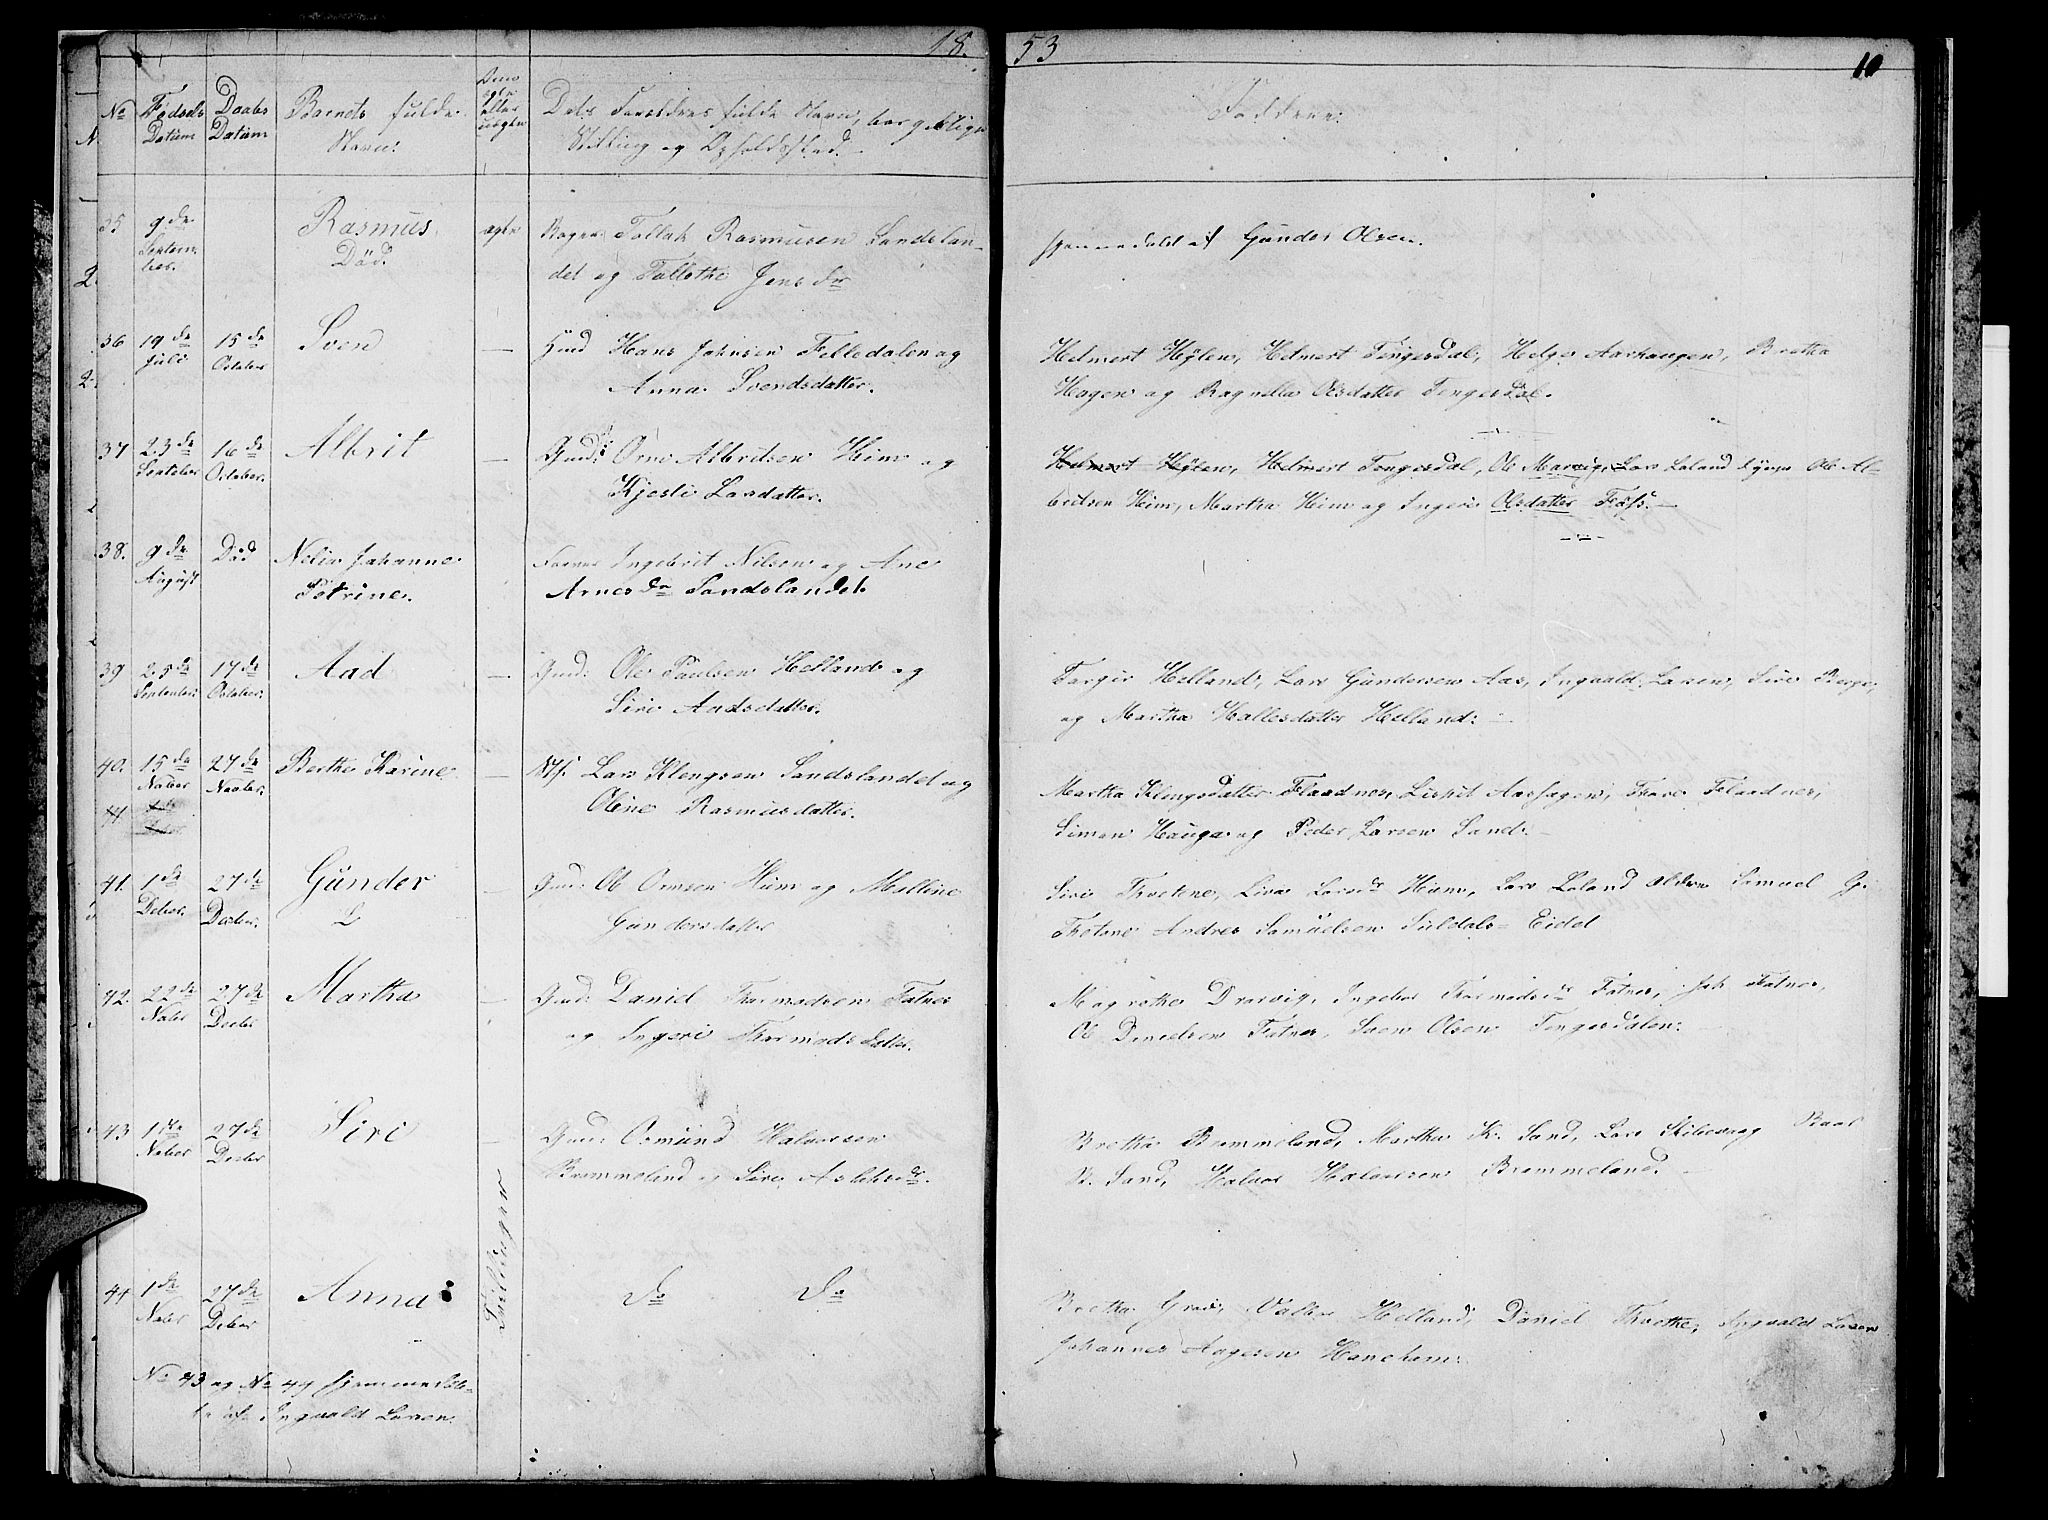 18 53
10
No Fødsels Datum Daabs Datum Barnets fulde Navn: Om ægte eller uægte Dets Forældres fulde Navn, borgerlige
Stilling og Opholdssted.
Faddere:
35 9de Septem-
ber. Rasmus
Död. ægte Tollak Rasmusen Sandslan-
det og Tallethe Jens dr
hjemmedøbt af Gunder Olsen.
36 19de Juli 15de October Sven — Huusd Hans Johnsen Felledalen og
Anna Svendsdatter.
Helmert Hylen, Helmert Tengesdal, Helge Aarhaugen, Bretha
Hagen og Ragnilla Olsdatter Tengesdal.
37 23de Septeber 16de October. Albrit — Gmd: Orm Albritsen Heim og
Kjesti Larsdatter.
Helmert Hylen, Helmert Tengesdal, Ole Marvig, Lars Leland yngre Ole Al-
britsen Heim, Martha Heim og Ingeri Olsdatter Foss.
38. 9de August Död Nelia Johanne
Petrine. Ingebrit Nilsen og Ane
Arnesdr Sandslandet.
39 25de September 17de October: Aad — Gmd: Ole Paulsen Helland og
Siri Aadsdatter.
Torgir Helland, Lars Gundersen Aas, Ingvald Larsen, Siri Berge,
og Martha Hallesdatter Helland:
40. 15de Nober 27de Novber. Berthe Karine — Lars Klengsen Sandslandet og
Oline Rasmusdatter.
41 1de Deber
Martha Klengsdatter Flaadnes, Lispit Aarhagen, Tore Flaadnes,
Simon Hauga og Peder Larsen Sand.
41. 1de Deber. 27de Decber. Gunder — Gmd: Ole Ormsen Heim og Malline
Gundersdatter
Siri Thotene, Liva Larsdr Heim, Lars Leland Ældre Simuel G:
Thotene Andres Samuelsen Suldals-Eidet
42. 22de Nober 27de Decber Martha — Gmd: Daniel Thormodsen Fatnes
og Ingeri Thormodsdatter.
Magrethe Drarvig, Ingebor Thormodsdr Fatnes, Joh Fatnes,
Ole Danielsen Fatnes, Sven Olsen Tengesdalen:
43 1de Nober 27de Decber Siri — Gmd: Osmund Halvorsen
Brommeland og Siri Aslaksdr.
Bretha Brommeland, Martha K. Sand, Lars Skibevaag Baar
B. Sand, Halvor Halvorsen Brommeland.
Tvillinger
44 1de Nober 27de Deber Anna: Do Do
Bretha Grov, Valbor Helland, Daniel Thvethe, Ingvald Larsen
Johannes Aagesen Honeham:
No 43 og No 44 hjemmedøb-
te af Ingvald Larsen.